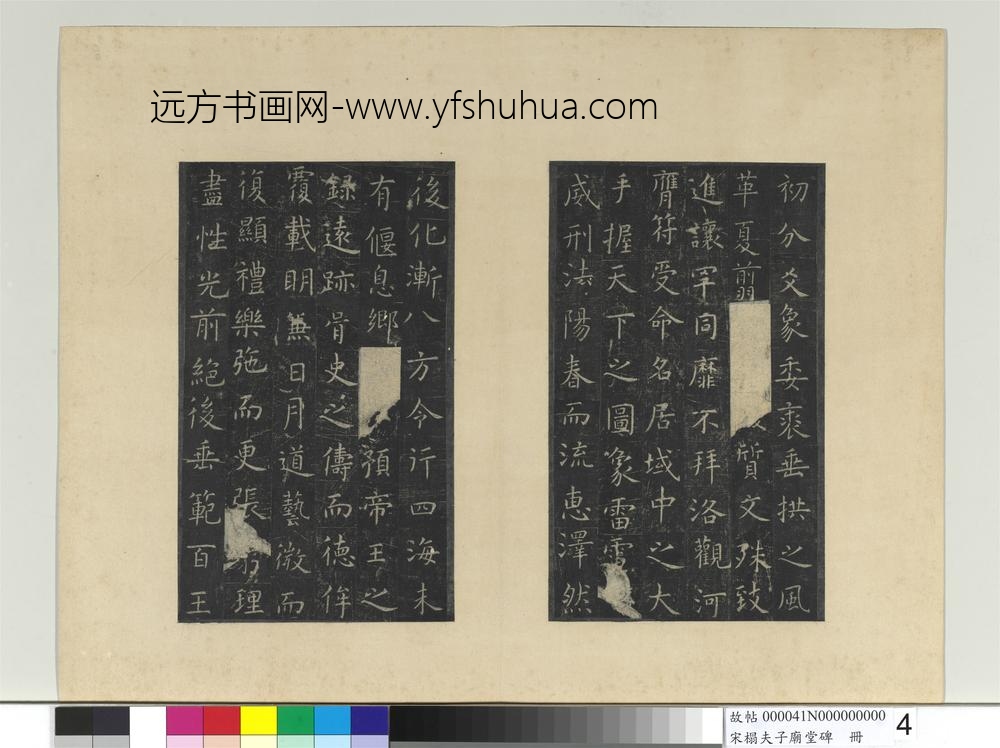 远方书画网-www.yfshuhua.com
初分爻象委裘垂拱之風
革夏翦質文殊致
進讓罕同靡不拜洛觀河
膺符受命名居域中之大
手握天下之圖象雷電
威刑法陽春而流惠澤然
後化漸八方令行四海未
有偃息鄉預帝王之
錄遠跡胥史之儔而德侔
覆載明兼日月道藝微而
復顯禮樂弛而更張理
盡性光前絕後垂範百王
故帖 000041N000000000
宋榻夫子廟堂碑 冊
4